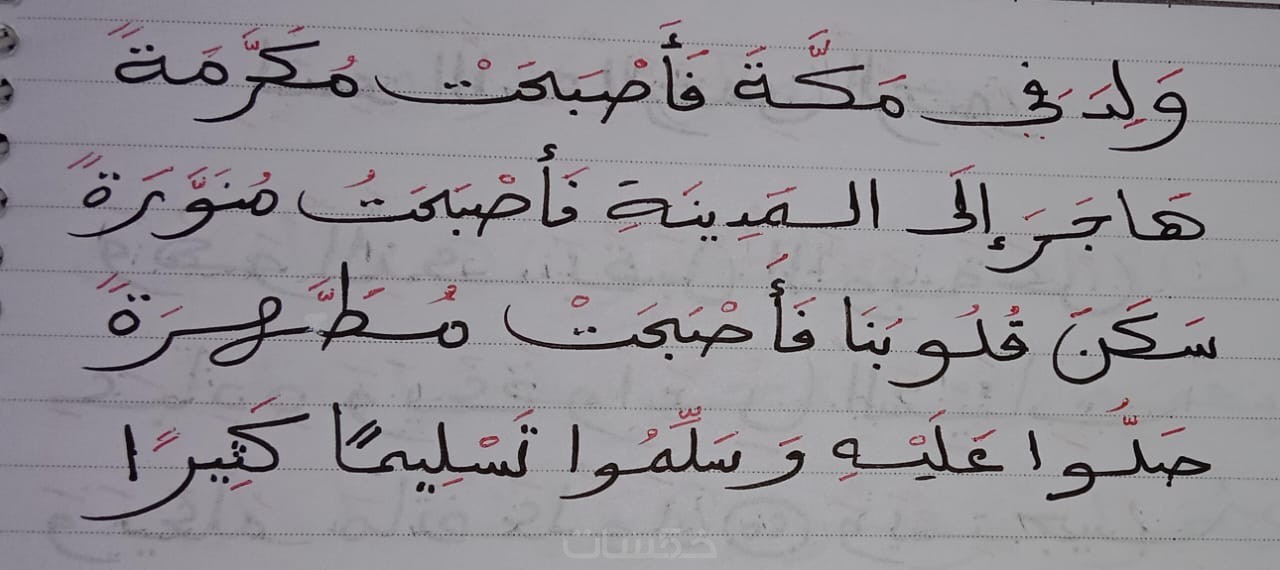 وَلِدَ فِي مَكَّةَ فَأَصْبَحَتْ مُكَرَّمَةً
هَاجَرَ إِلَى المَدِينَةِ فَأَصْبَحَتُ مُنَوَّرَةً
سَكَنَ قُلُوبَنَا فَأَصْبَحَتْ مُطَهَّرَةً
صَلُّوا عَلَيْهِ وَ سَلِّمُوا تَسْلِيمًا كَثِيرًا
خمسات